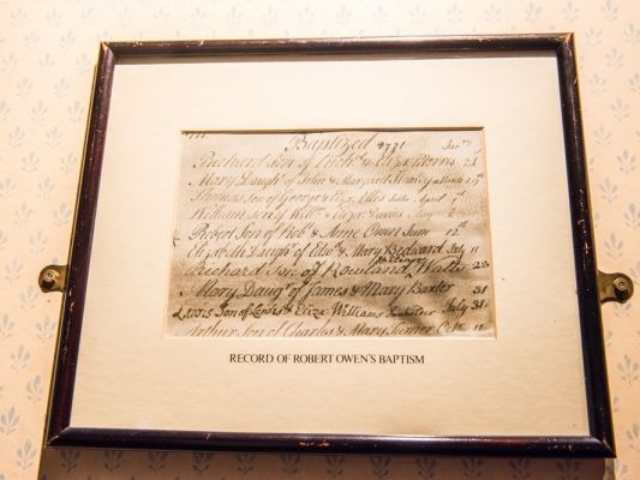 Baptized 1771 Jan.ry
Richard Son of Rich.d & Eliz. Morris 21
Mary Daugh.r of John & Margaret March 29
Thomas Son of George & Eliz. Ellis April
William Son of Will.m & Eliz.
Robert Son of Rob.t & Anne Owen June 12th
Elizabeth Daugh.r of Edw.d & Mary Bedward July 11
Richard Son of Rowland Watter 28
Mary Daug.r of James & Mary Baxter 31
Lewis Son of Lewis & Eliza Williams July 31
Arthur Son of Charles & Mary Turner Oct. 11
RECORD OF ROBERT OWEN'S BAPTISM